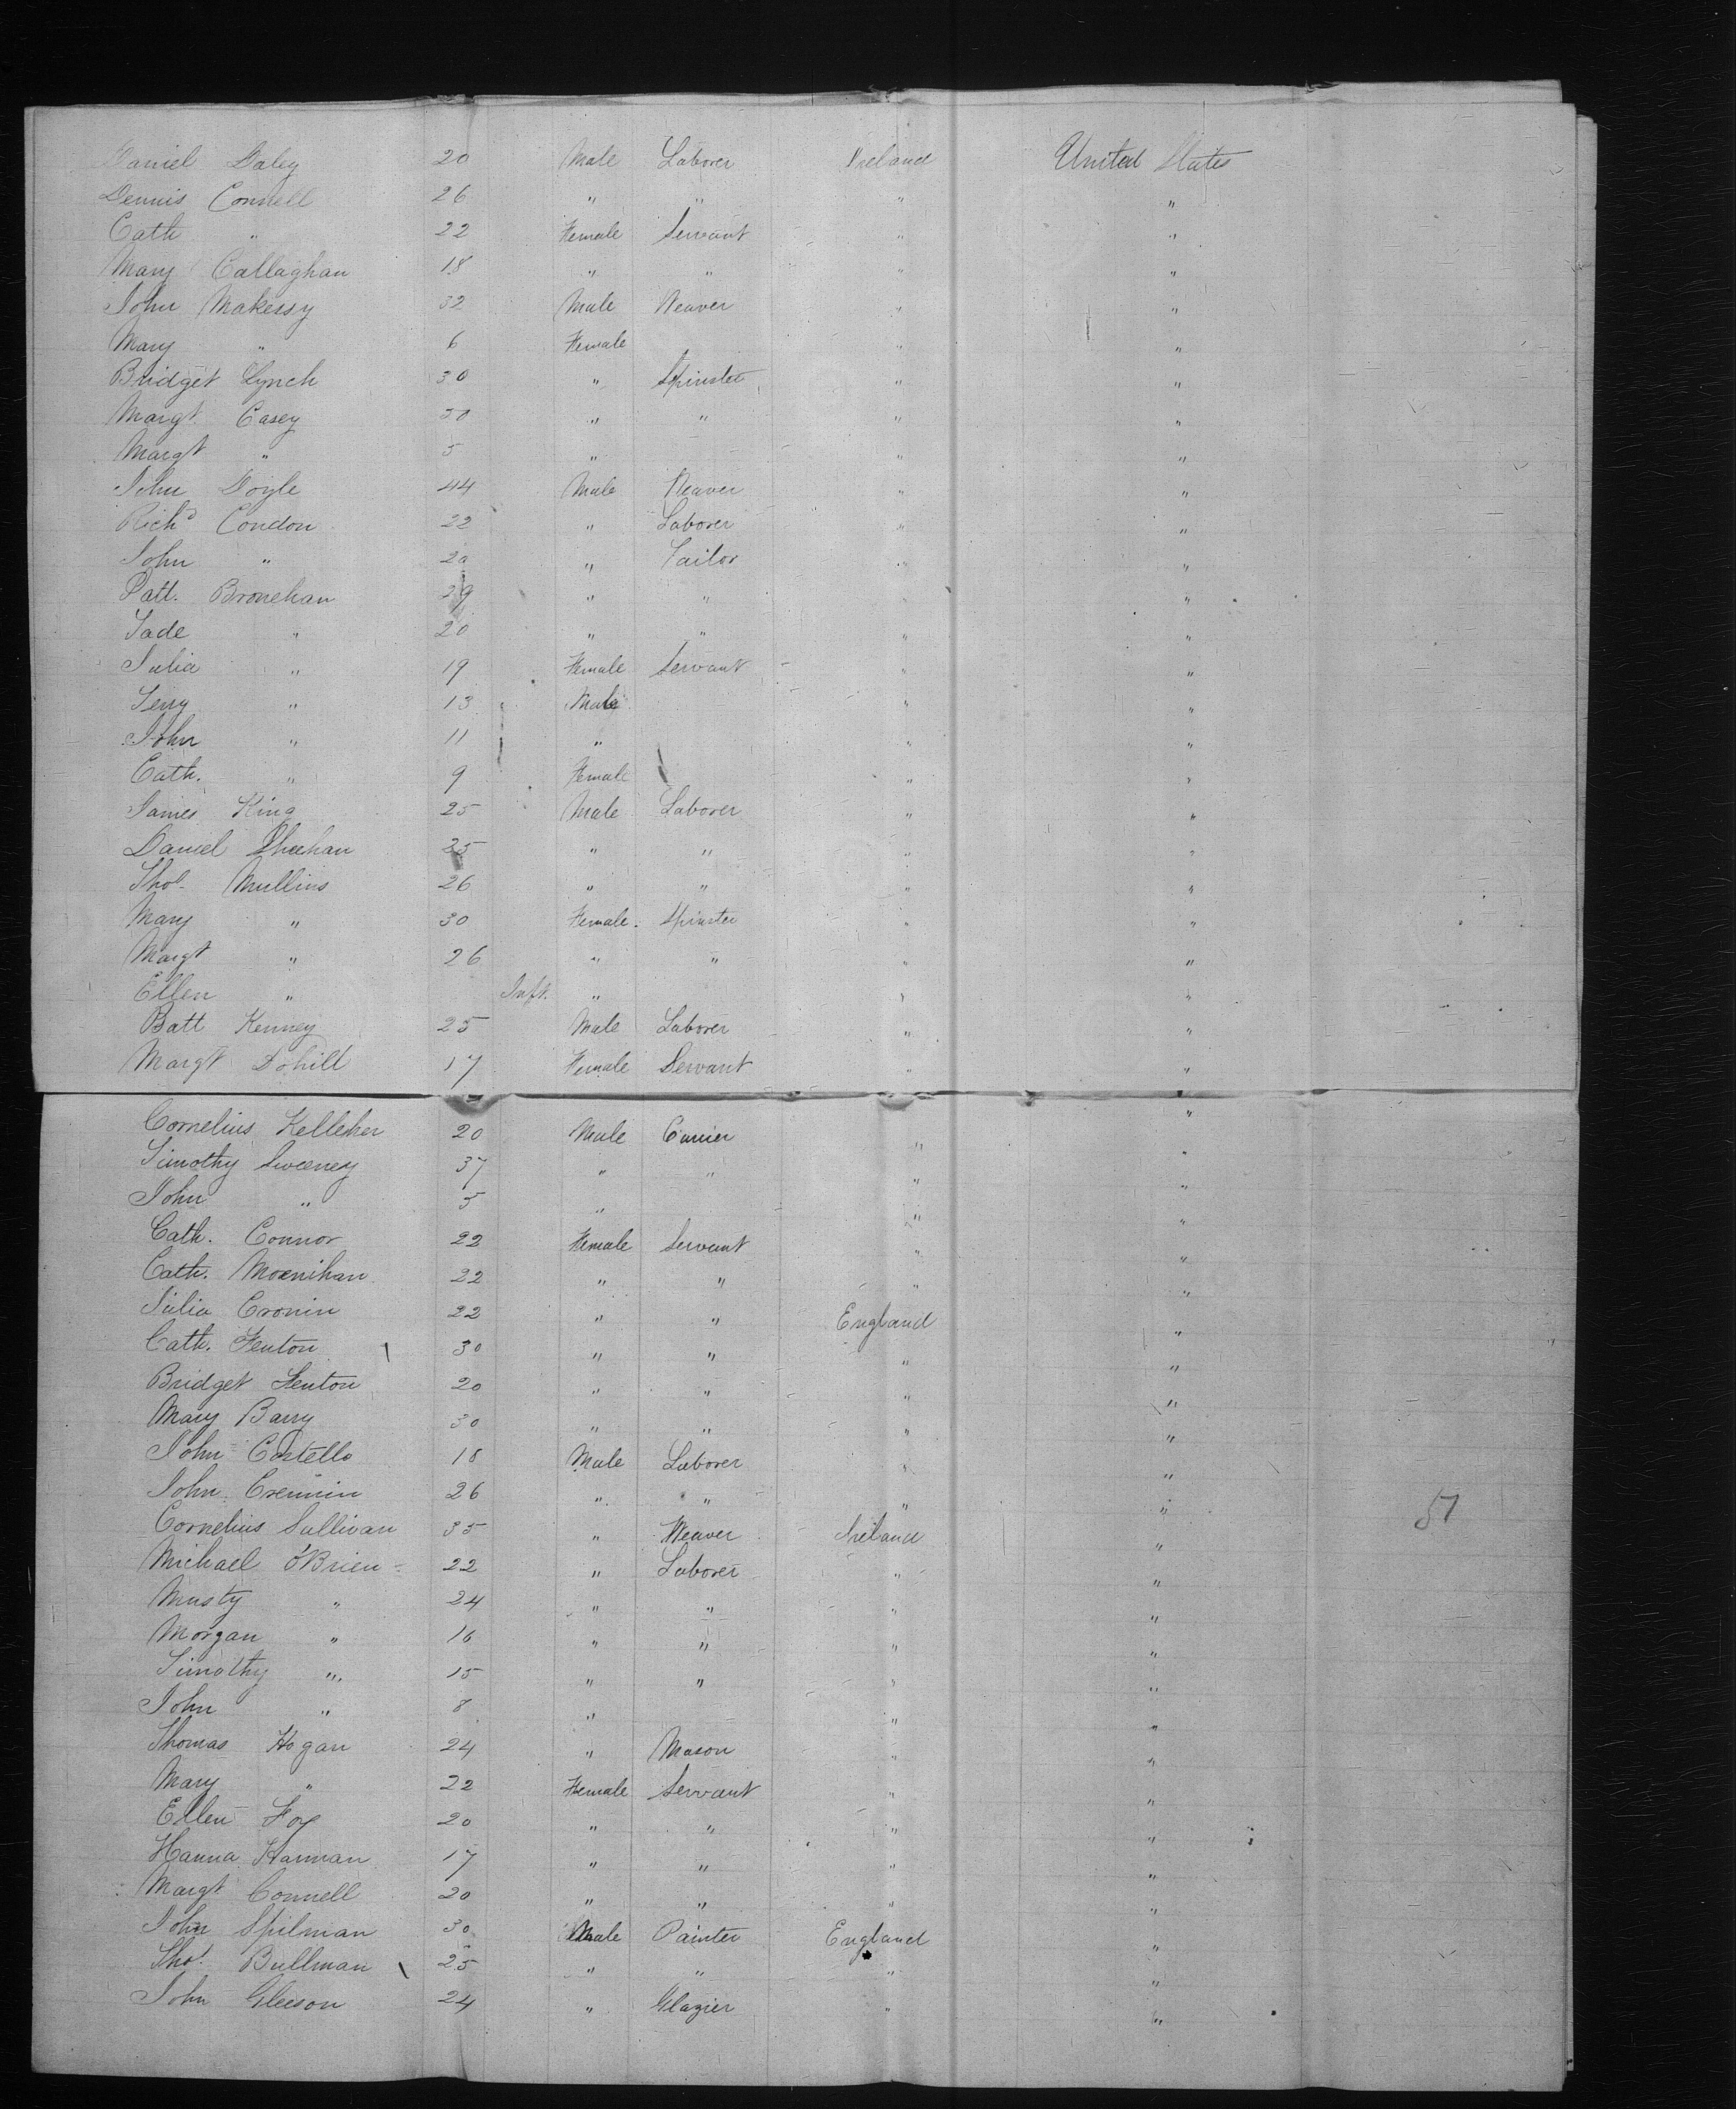 Daniel Daley 20 Male Laborer Ireland United States
Dennis Connell 26 " " " "
Cath " 22 Female Servant " "
Mary Callaghan 18 " " " "
John Makessy 32 Male Weaver " "
Mary " 6 Female " "
Bridget Lynch 30 " Spinster " "
Margt. Casey 30 " " " "
Margt " 5 " " "
John Doyle 44 Male Weaver " "
Richd Condon 22 " Laborer " "
John " 20 " Tailor " "
Patt. Bronehan 29 " " " "
Jade " 20 " " " "
Julia " 19 Female Servant " "
Jerry " 13 Male " "
John " 11 " " "
Cath. " 9 Female " "
James King 25 Male Laborer " "
Daniel Sheehan 25 " " " "
Thos. Mullins 26 " " " "
Mary " 30 Female Spinster " "
Margt " 26 " " " "
Ellen " Inft. " " "
Batt Kenney 25 Male Laborer " "
Margt Dohill 17 Female Servant " "
Cornelius Kelleher 20 Male Carrier " "
Timothy Sweeney 37 " " " "
John " 5 " " "
Cath. Connor 22 Female Servant " "
Cath. Moenihan 22 " " " "
Julia Cronin 22 " " England "
Cath. Fenton 30 " " " "
Bridget Fenton 20 " " " "
Mary Barry 30 " " " "
John Costello 18 Male Laborer " "
John Cremin 26 " " " "
57
Cornelius Sullivan 35 " Weaver Ireland "
Michael O'Brien 22 " Laborer " "
Musty " 24 " " " "
Morgan " 16 " " " "
Timothy " 15 " " " "
John " 8 " " "
Thomas Hogan 24 " Mason " "
Mary " 22 Female Servant " "
Ellen Foy 20 " " " "
Hanna Hannan 17 " " " "
Margt. Connell 20 " " " "
John Spilman 30 Male Painter England "
Thos. Bullman 25 " " " "
John Gleeson 24 " Glazier " "